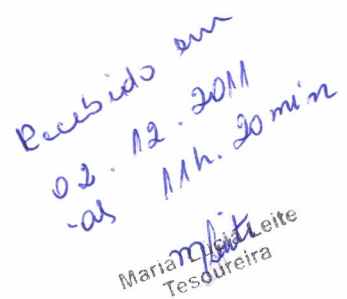 Recebido em
02.12.2011
às 11h.20min
Maria Lucia Leite
Tesoureira